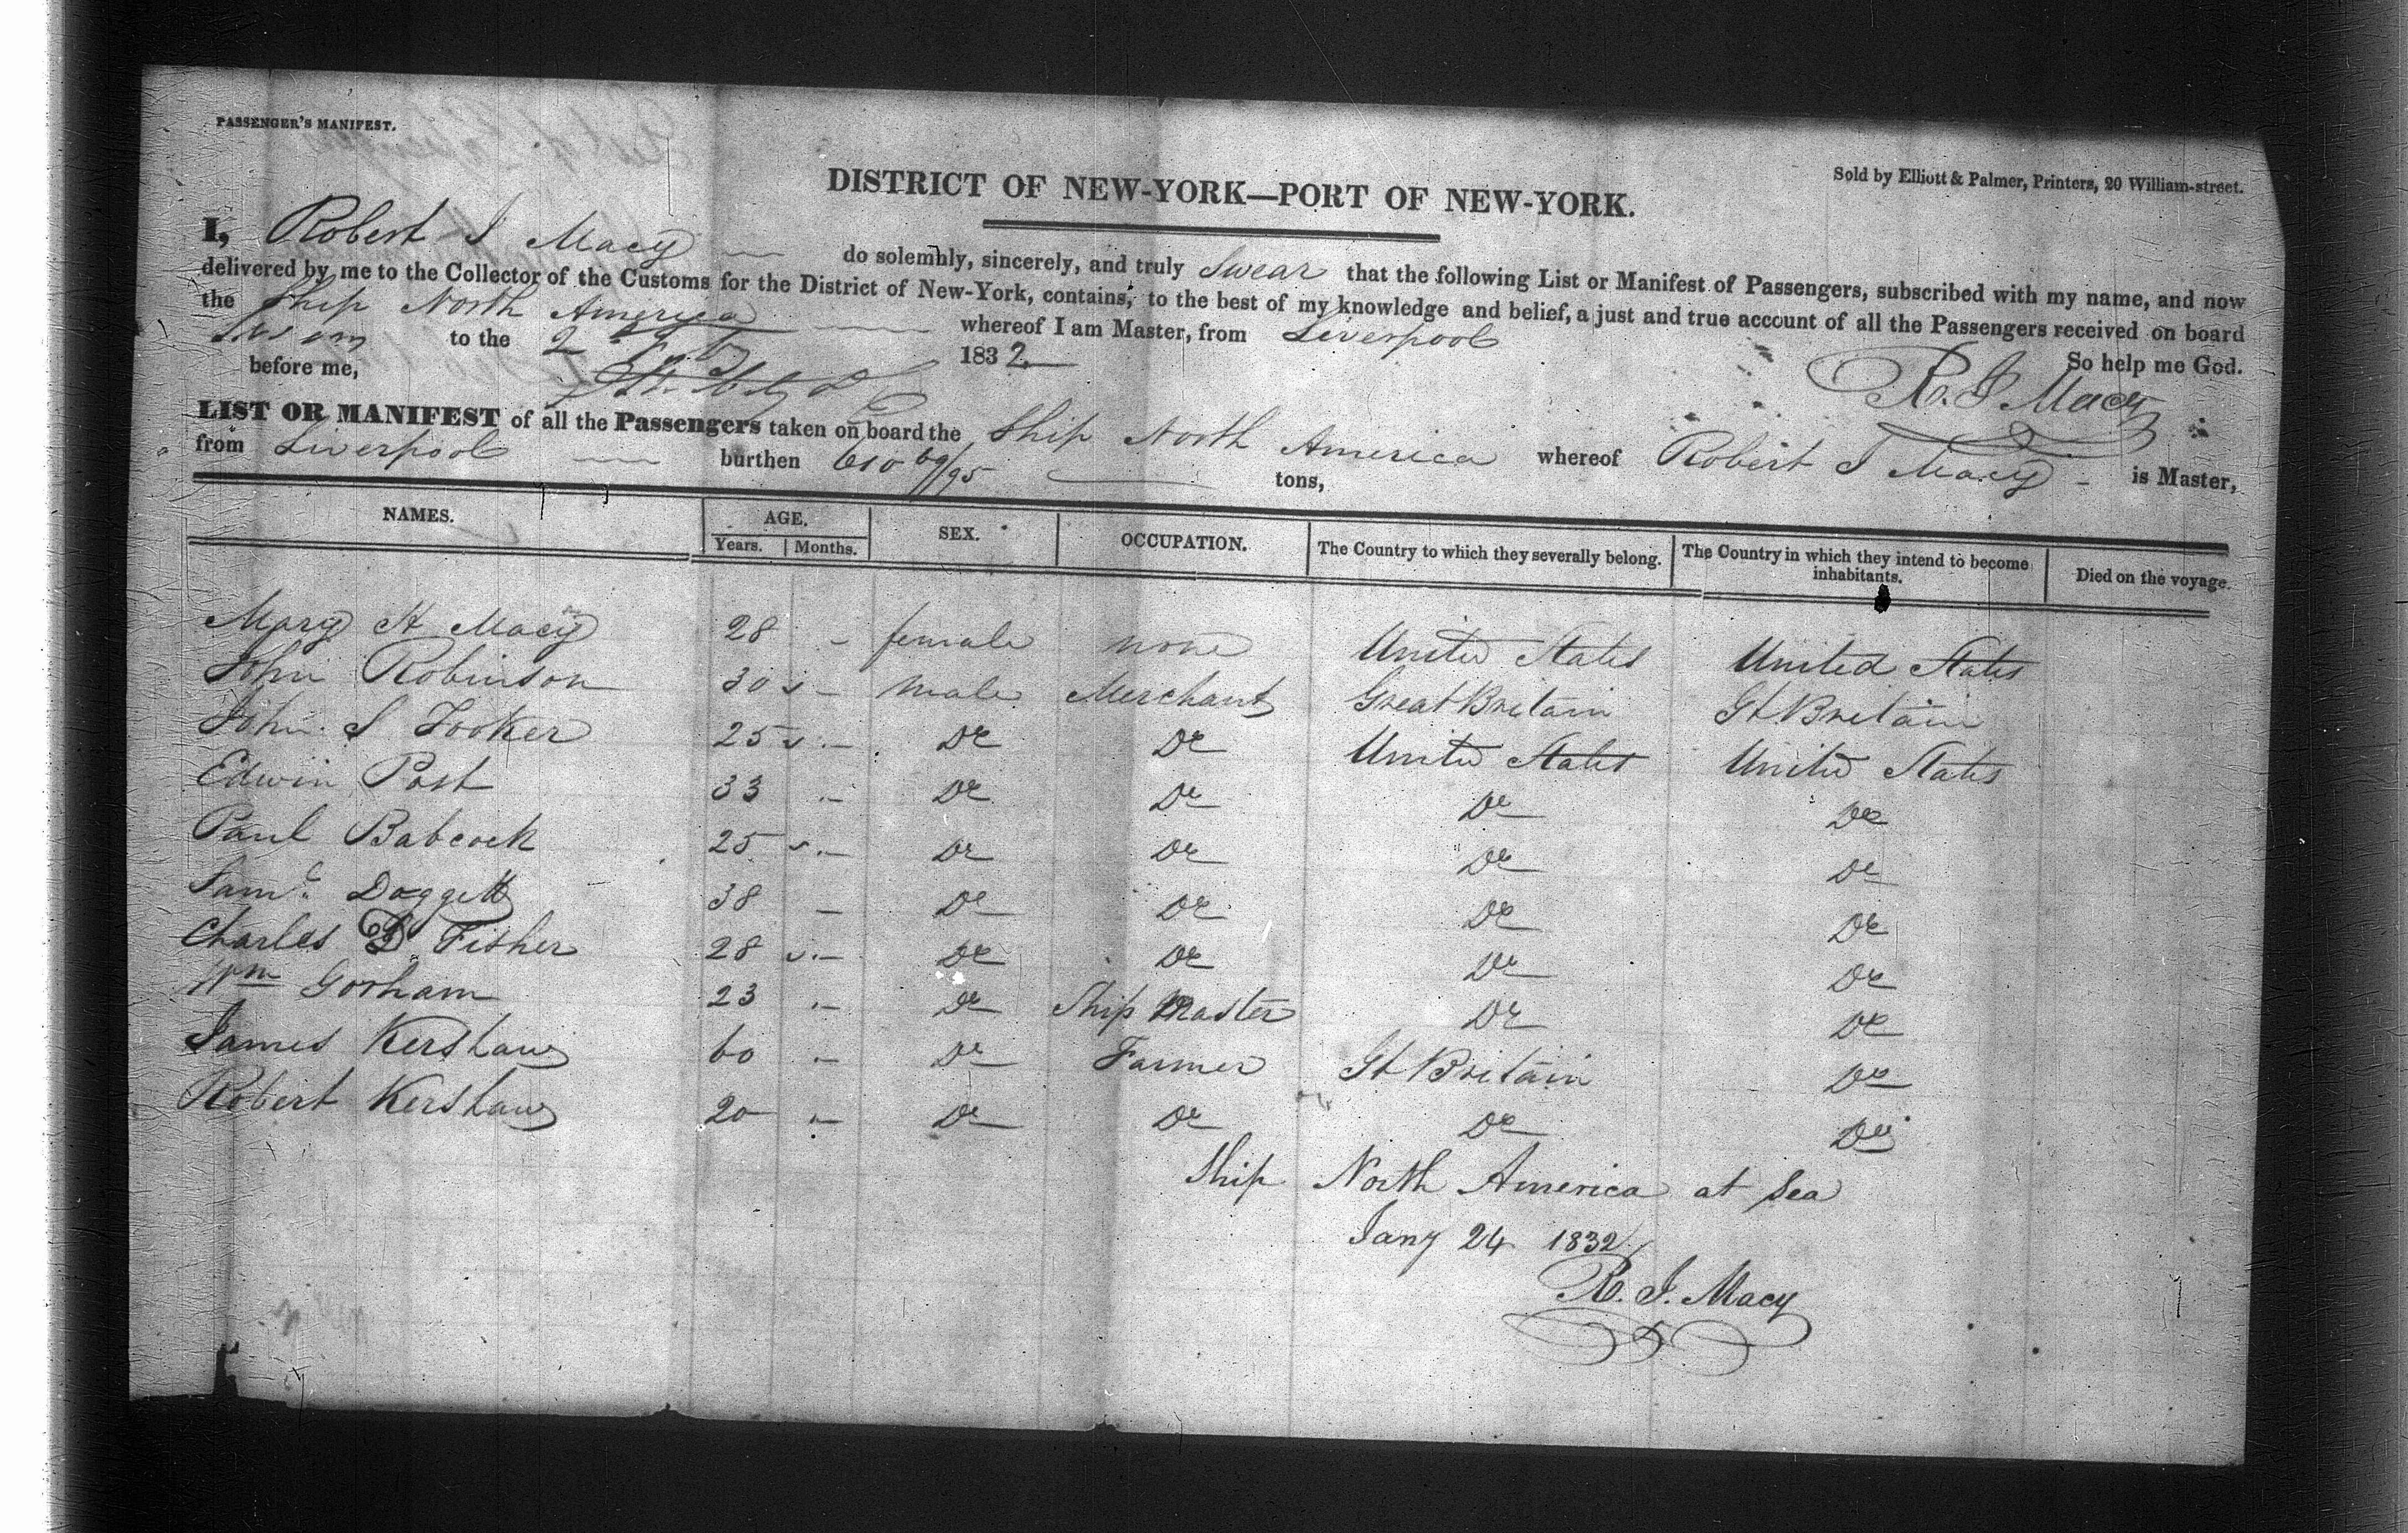 PASSENGER'S MANIFEST.
Sold by Elliott & Palmer, Printers, 20 William-street.
DISTRICT OF NEW-YORK—PORT OF NEW-YORK.
I, Robert J Macy do solemnly, sincerely, and truly Swear that the following List or Manifest of Passengers, subscribed with my name, and now
delivered by me to the Collector of the Customs for the District of New-York, contains, to the best of my knowledge and belief, a just and true account of all the Passengers received on board
the Ship North America whereof I am Master, from Liverpool
So help me God.
Sworn to the 2 Feb 1832
before me,
R. J. Macy
LIST OR MANIFEST of all the Passengers taken on board the Ship North America whereof Robert J Macy is Master,
from Liverpool burthen 610 69/95 tons,
NAMES. AGE. SEX. OCCUPATION. The Country to which they severally belong. The Country in which they intend to become inhabitants. Died on the voyage.
Years. Months.
Mary H Macy 28 - female none United States United States
John Robinson 30 - male Merchant Great Britain Gt Britain
John S Tooker 25 - Do Do United States United States
Edwin Post 33 - Do Do Do Do
Paul Babcock 25 - Do Do Do Do
Saml. Doggett 38 - Do Do Do Do
Charles D Fisher 28 - Do Do Do Do
Wm Gorham 23 - Do Ship Master Do Do
James Kershaw 60 - Do Farmer Gt Britain Do
Robert Kershaw 20 - Do Do Do Do
Ship North America at Sea
Jany 24 1832
R. J. Macy